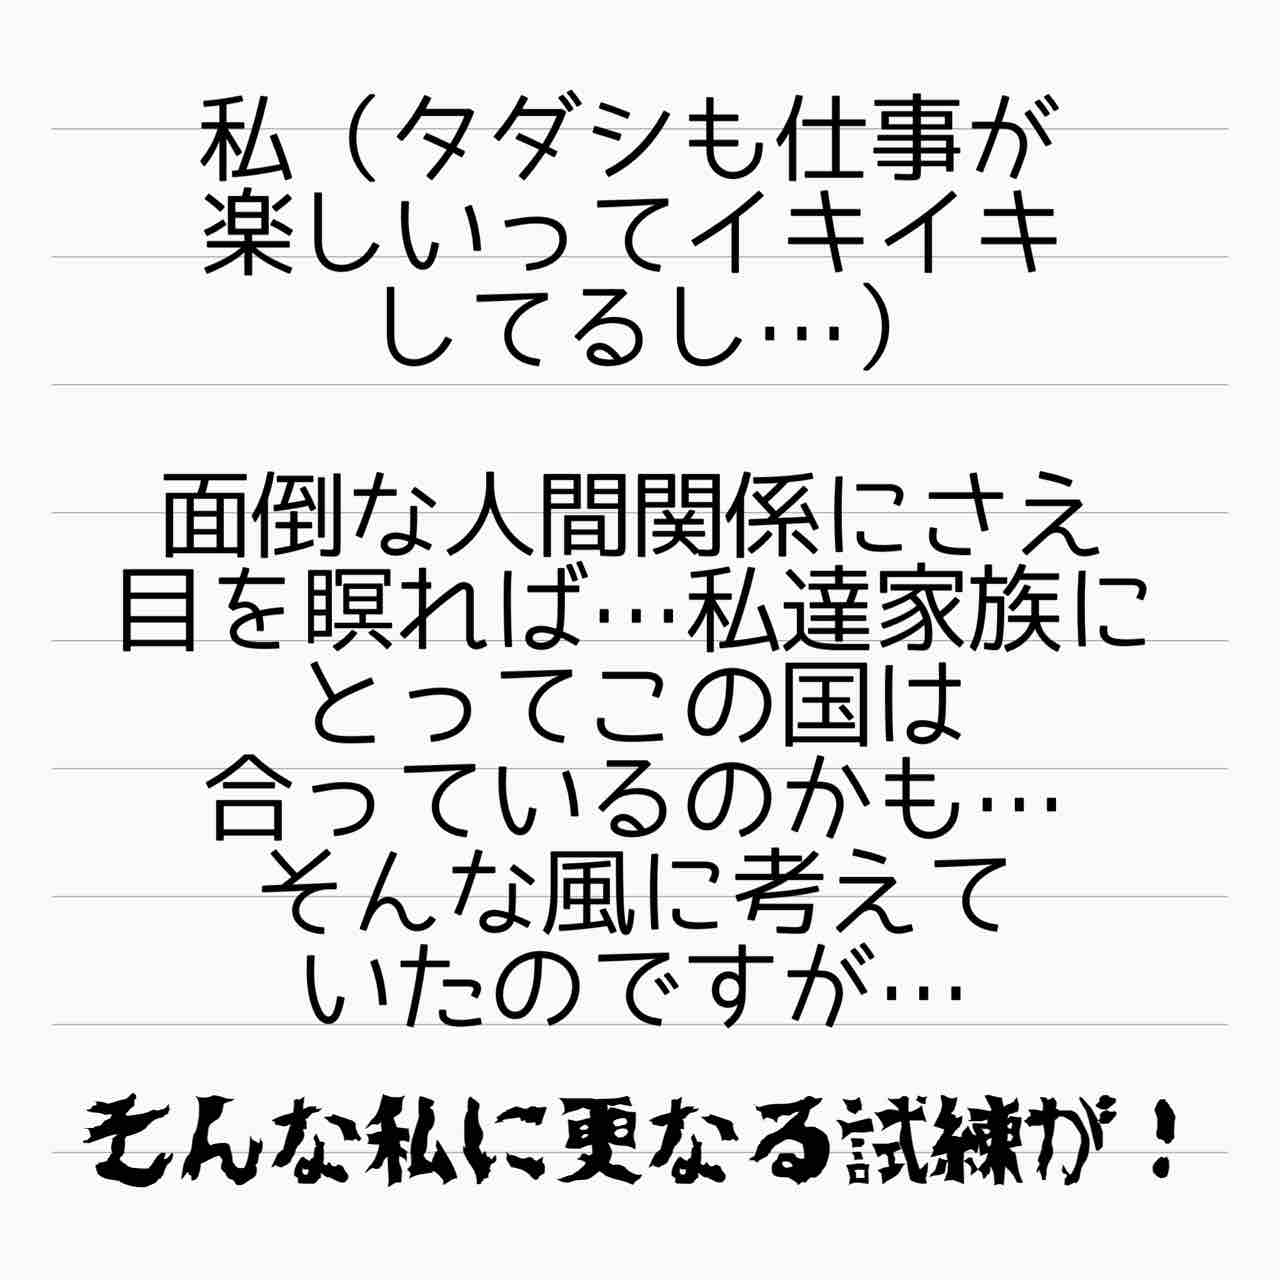 私（タダシも仕事が
楽しいってイキイキ
してるし…）
面倒な人間関係にさえ
目を瞑れば…私達家族に
とってこの国は
合っているのかも…
そんな風に考えて
いたのですが…
そんな私に更なる試練が！